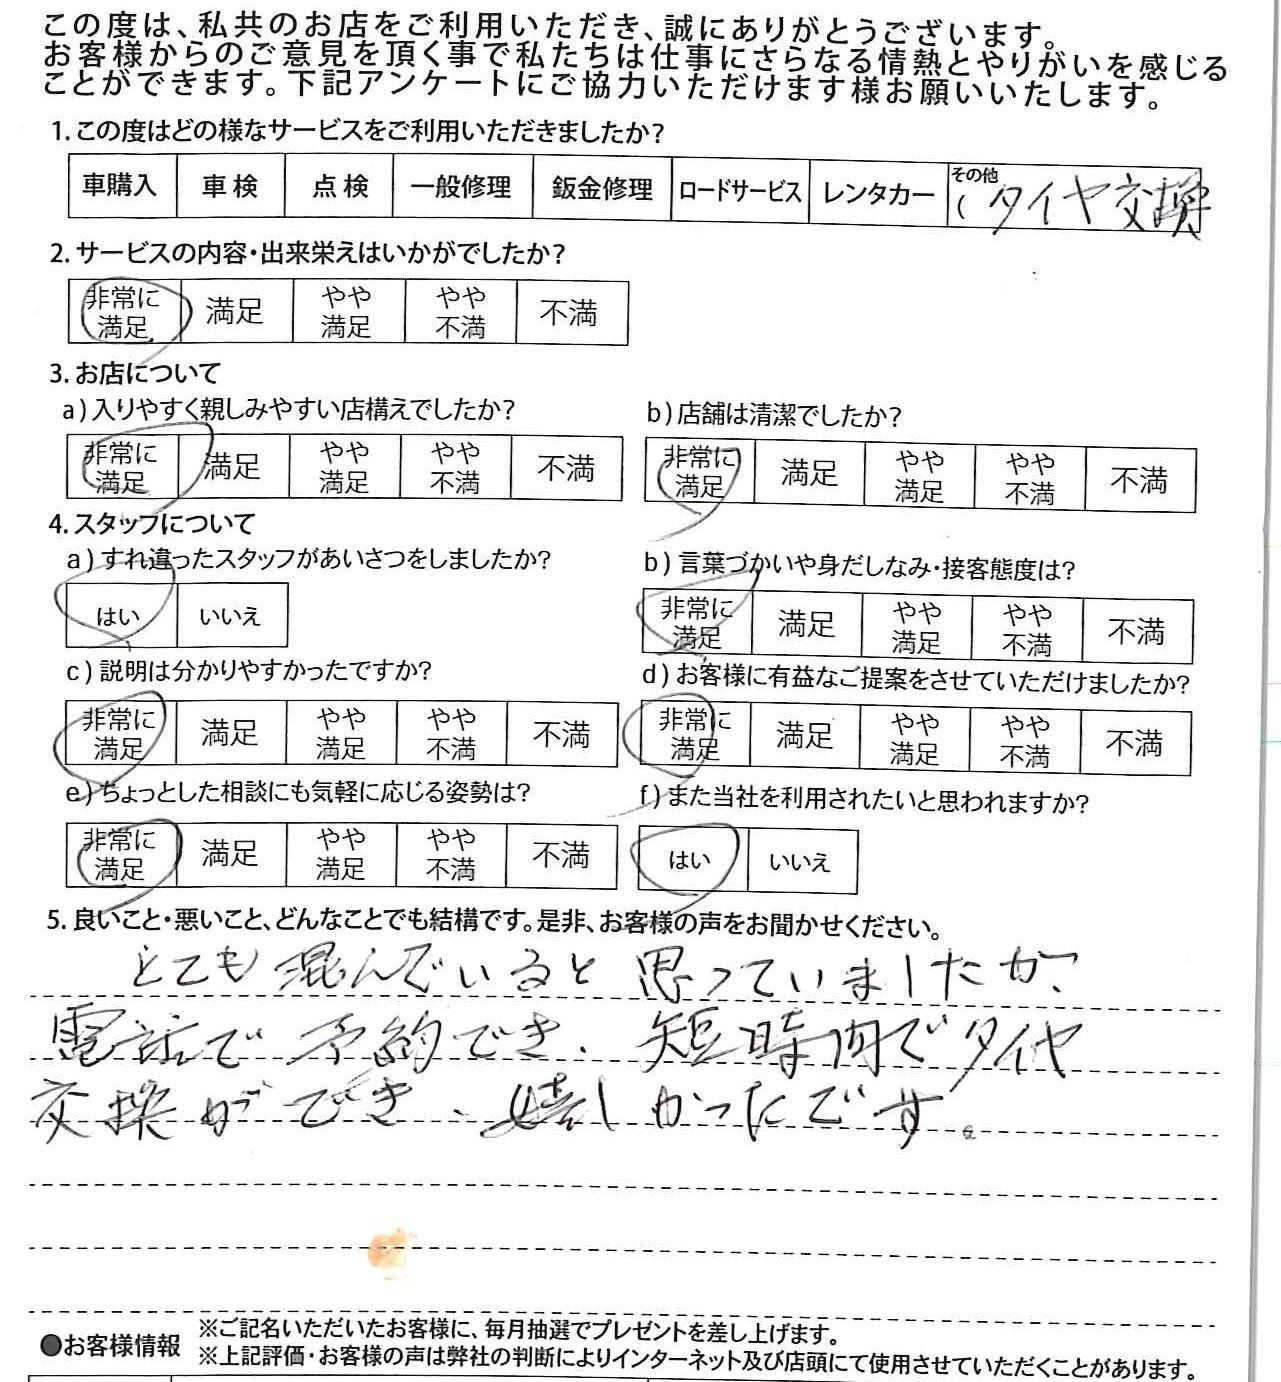 この度は、私共のお店をご利用いただき、誠にありがとうございます。
お客様からのご意見を頂く事で私たちは仕事にさらなる情熱とやりがいを感じる
ことができます。下記アンケートにご協力いただけます様お願いいたします。
1. この度はどの様なサービスをご利用いただきましたか?
車購入 車検 点検 一般修理 鈑金修理 ロードサービス レンタカー その他
( タイヤ交換
2. サービスの内容・出来栄えはいかがでしたか?
非常に満足 満足 やや満足 やや不満 不満
3. お店について
a) 入りやすく親しみやすい店構えでしたか?
非常に満足 満足 やや満足 やや不満 不満
b) 店舗は清潔でしたか?
非常に満足 満足 やや満足 やや不満 不満
4. スタッフについて
a) すれ違ったスタッフがあいさつをしましたか?
はい いいえ
b) 言葉づかいや身だしなみ・接客態度は?
非常に満足 満足 やや満足 やや不満 不満
c) 説明は分かりやすかったですか?
非常に満足 満足 やや満足 やや不満 不満
d) お客様に有益なご提案をさせていただけましたか?
非常に満足 満足 やや満足 やや不満 不満
e) ちょっとした相談にも気軽に応じる姿勢は?
非常に満足 満足 やや満足 やや不満 不満
f) また当社を利用されたいと思われますか?
はい いいえ
5. 良いこと・悪いこと、どんなことでも結構です。是非、お客様の声をお聞かせください。
とても混んでいると思っていましたが、
電話で予約でき、短時間でタイヤ
交換ができ、嬉しかったです。
●お客様情報
※ご記名いただいたお客様に、毎月抽選でプレゼントを差し上げます。
※上記評価・お客様の声は弊社の判断によりインターネット及び店頭にて使用させていただくことがあります。